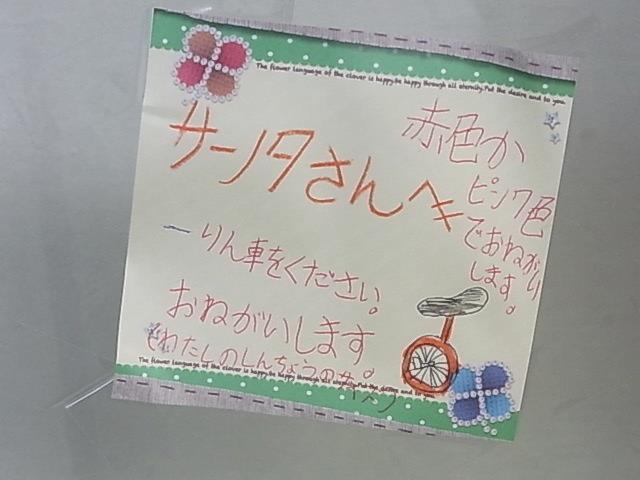 The flower language of the clover is happy.be happy through all eternity.Put the desire and to you.
サンタさんへ
赤色か
ピンク色
でおねがい
します。
一りん車をください。
おねがいします。
でわたしのしんちょうのサイズ
The flower language of the clover is happy.be happy through all eternity.Put the desire and to you.